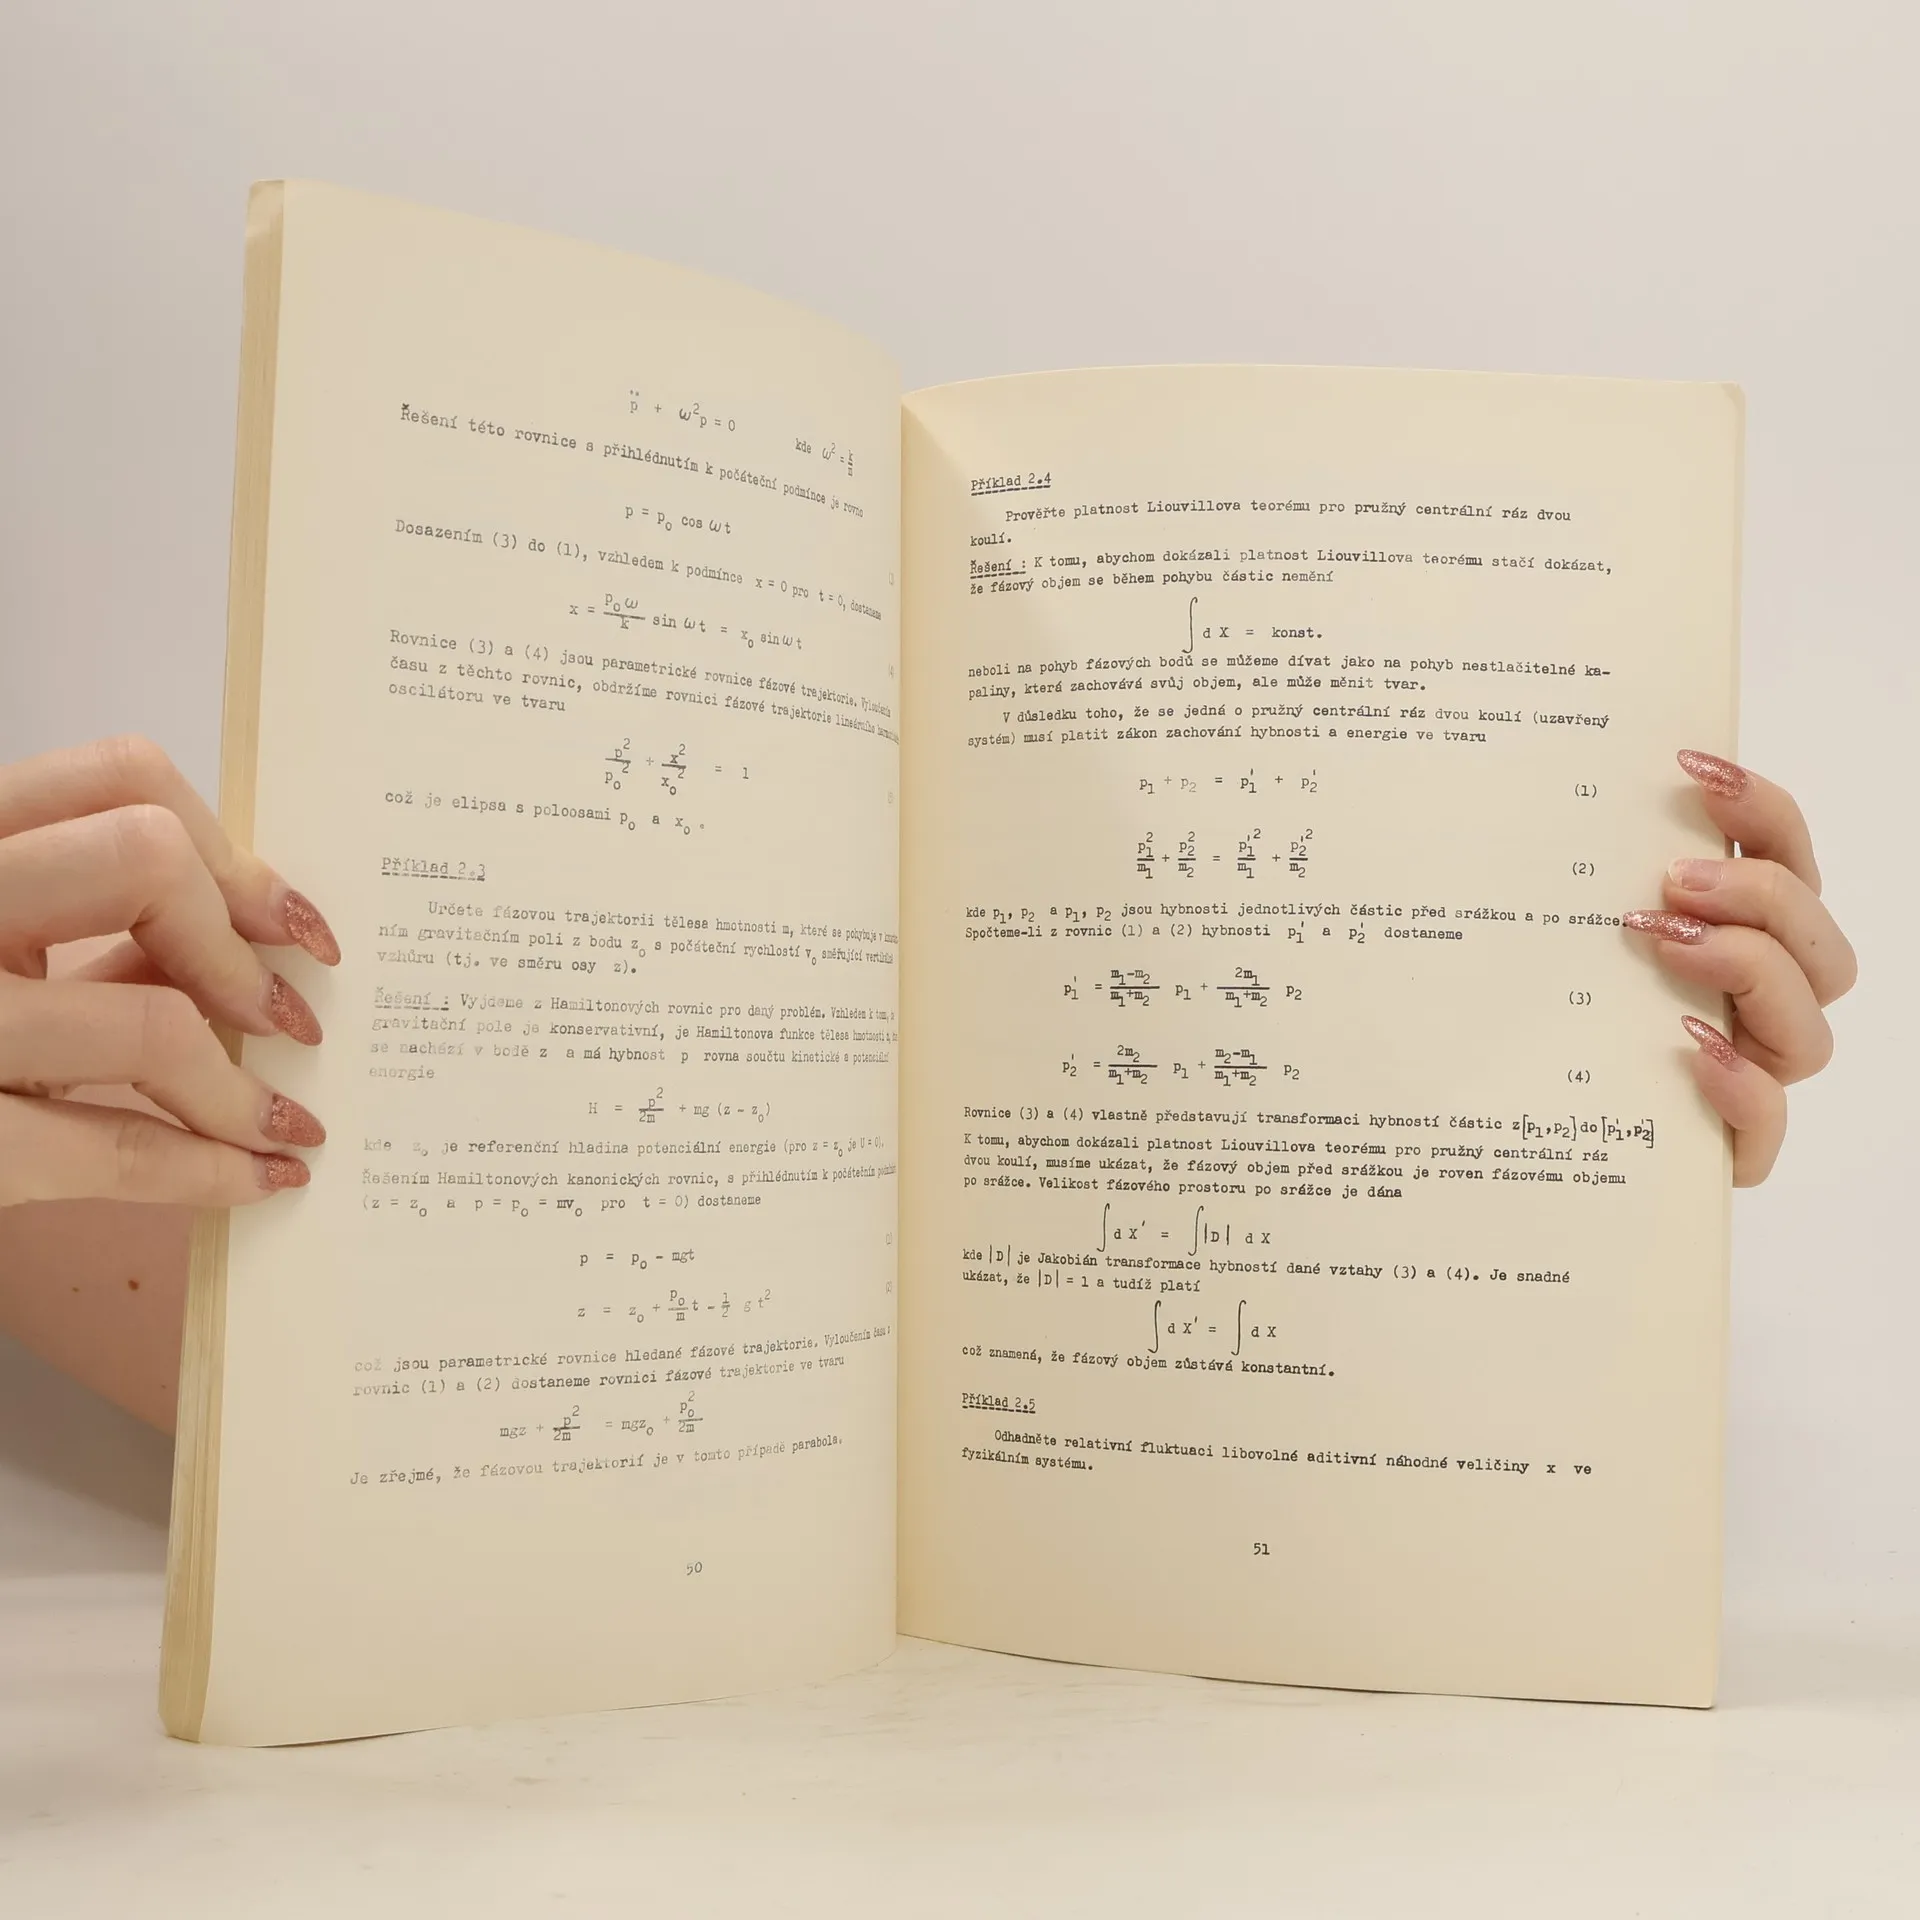 p̈ + ω²p = 0 kde ω² = k/m
Řešení této rovnice s přihlédnutím k počáteční podmínce je rovno
p = p₀ cos ωt
Dosazením (3) do (1), vzhledem k podmínce x = 0 pro t = 0, dostaneme
x = p₀ω/k sin ωt = x₀ sin ωt
Rovnice (3) a (4) jsou parametrické rovnice fázové trajektorie. Vyloučením
času z těchto rovnic, obdržíme rovnici fázové trajektorie lineárního
oscilátoru ve tvaru
p²/p₀² + x²/x₀² = 1
což je elipsa s poloosami p₀ a x₀ .
Příklad 2.3
Určete fázovou trajektorii tělesa hmotnosti m, které se pohybuje v
ním gravitačním poli z bodu z₀ s počáteční rychlostí v₀ směřující vertikálně
vzhůru (tj. ve směru osy z).
Řešení : Vyjdeme z Hamiltonových rovnic pro daný problém. Vzhledem k tomu,
gravitační pole je konservativní, je Hamiltonova funkce tělesa hmotnosti m,
se nachází v bodě z a má hybnost p rovna součtu kinetické a potenciální
energie
H = p²/2m + mg (z - z₀)
kde z₀ je referenční hladina potenciální energie (pro z = z₀ je U = 0).
Řešením Hamiltonových kanonických rovnic, s přihlédnutím k počátečním
(z = z₀ a p = p₀ = mv₀ pro t = 0) dostaneme
p = p₀ - mgt (1)
z = z₀ + p₀/m t - 1/2 g t² (2)
což jsou parametrické rovnice hledané fázové trajektorie. Vyloučením času z
rovnic (1) a (2) dostaneme rovnici fázové trajektorie ve tvaru
mgz + p²/2m = mgz₀ + p₀²/2m
Je zřejmé, že fázovou trajektorií je v tomto případě parabola.
50
Příklad 2.4
Prověřte platnost Liouvillova teorému pro pružný centrální ráz dvou
koulí.
Řešení : K tomu, abychom dokázali platnost Liouvillova teorému stačí dokázat,
že fázový objem se během pohybu částic nemění
∫ d X = konst.
neboli na pohyb fázových bodů se můžeme dívat jako na pohyb nestlačitelné ka-
paliny, která zachovává svůj objem, ale může měnit tvar.
V důsledku toho, že se jedná o pružný centrální ráz dvou koulí (uzavřený
systém) musí platit zákon zachování hybnosti a energie ve tvaru
p₁ + p₂ = p₁' + p₂' (1)
p₁²/m₁ + p₂²/m₂ = p₁'²/m₁ + p₂'²/m₂ (2)
kde p₁, p₂ a p₁, p₂ jsou hybnosti jednotlivých částic před srážkou a po srážce.
Spočteme-li z rovnic (1) a (2) hybnosti p₁' a p₂' dostaneme
p₁' = m₁-m₂/m₁+m₂ p₁ + 2m₁/m₁+m₂ p₂ (3)
p₂' = 2m₂/m₁+m₂ p₁ + m₂-m₁/m₁+m₂ p₂ (4)
Rovnice (3) a (4) vlastně představují transformaci hybností částic z [p₁,p₂] do [p₁',p₂']
K tomu, abychom dokázali platnost Liouvillova teorému pro pružný centrální ráz
dvou koulí, musíme ukázat, že fázový objem před srážkou je roven fázovému objemu
po srážce. Velikost fázového prostoru po srážce je dána
∫ d X' = ∫ |D| d X
kde |D| je Jakobián transformace hybností dané vztahy (3) a (4). Je snadné
ukázat, že |D| = 1 a tudíž platí
∫ d X' = ∫ d X
což znamená, že fázový objem zůstává konstantní.
Příklad 2.5
Odhadněte relativní fluktuaci libovolné aditivní náhodné veličiny x ve
fyzikálním systému.
51